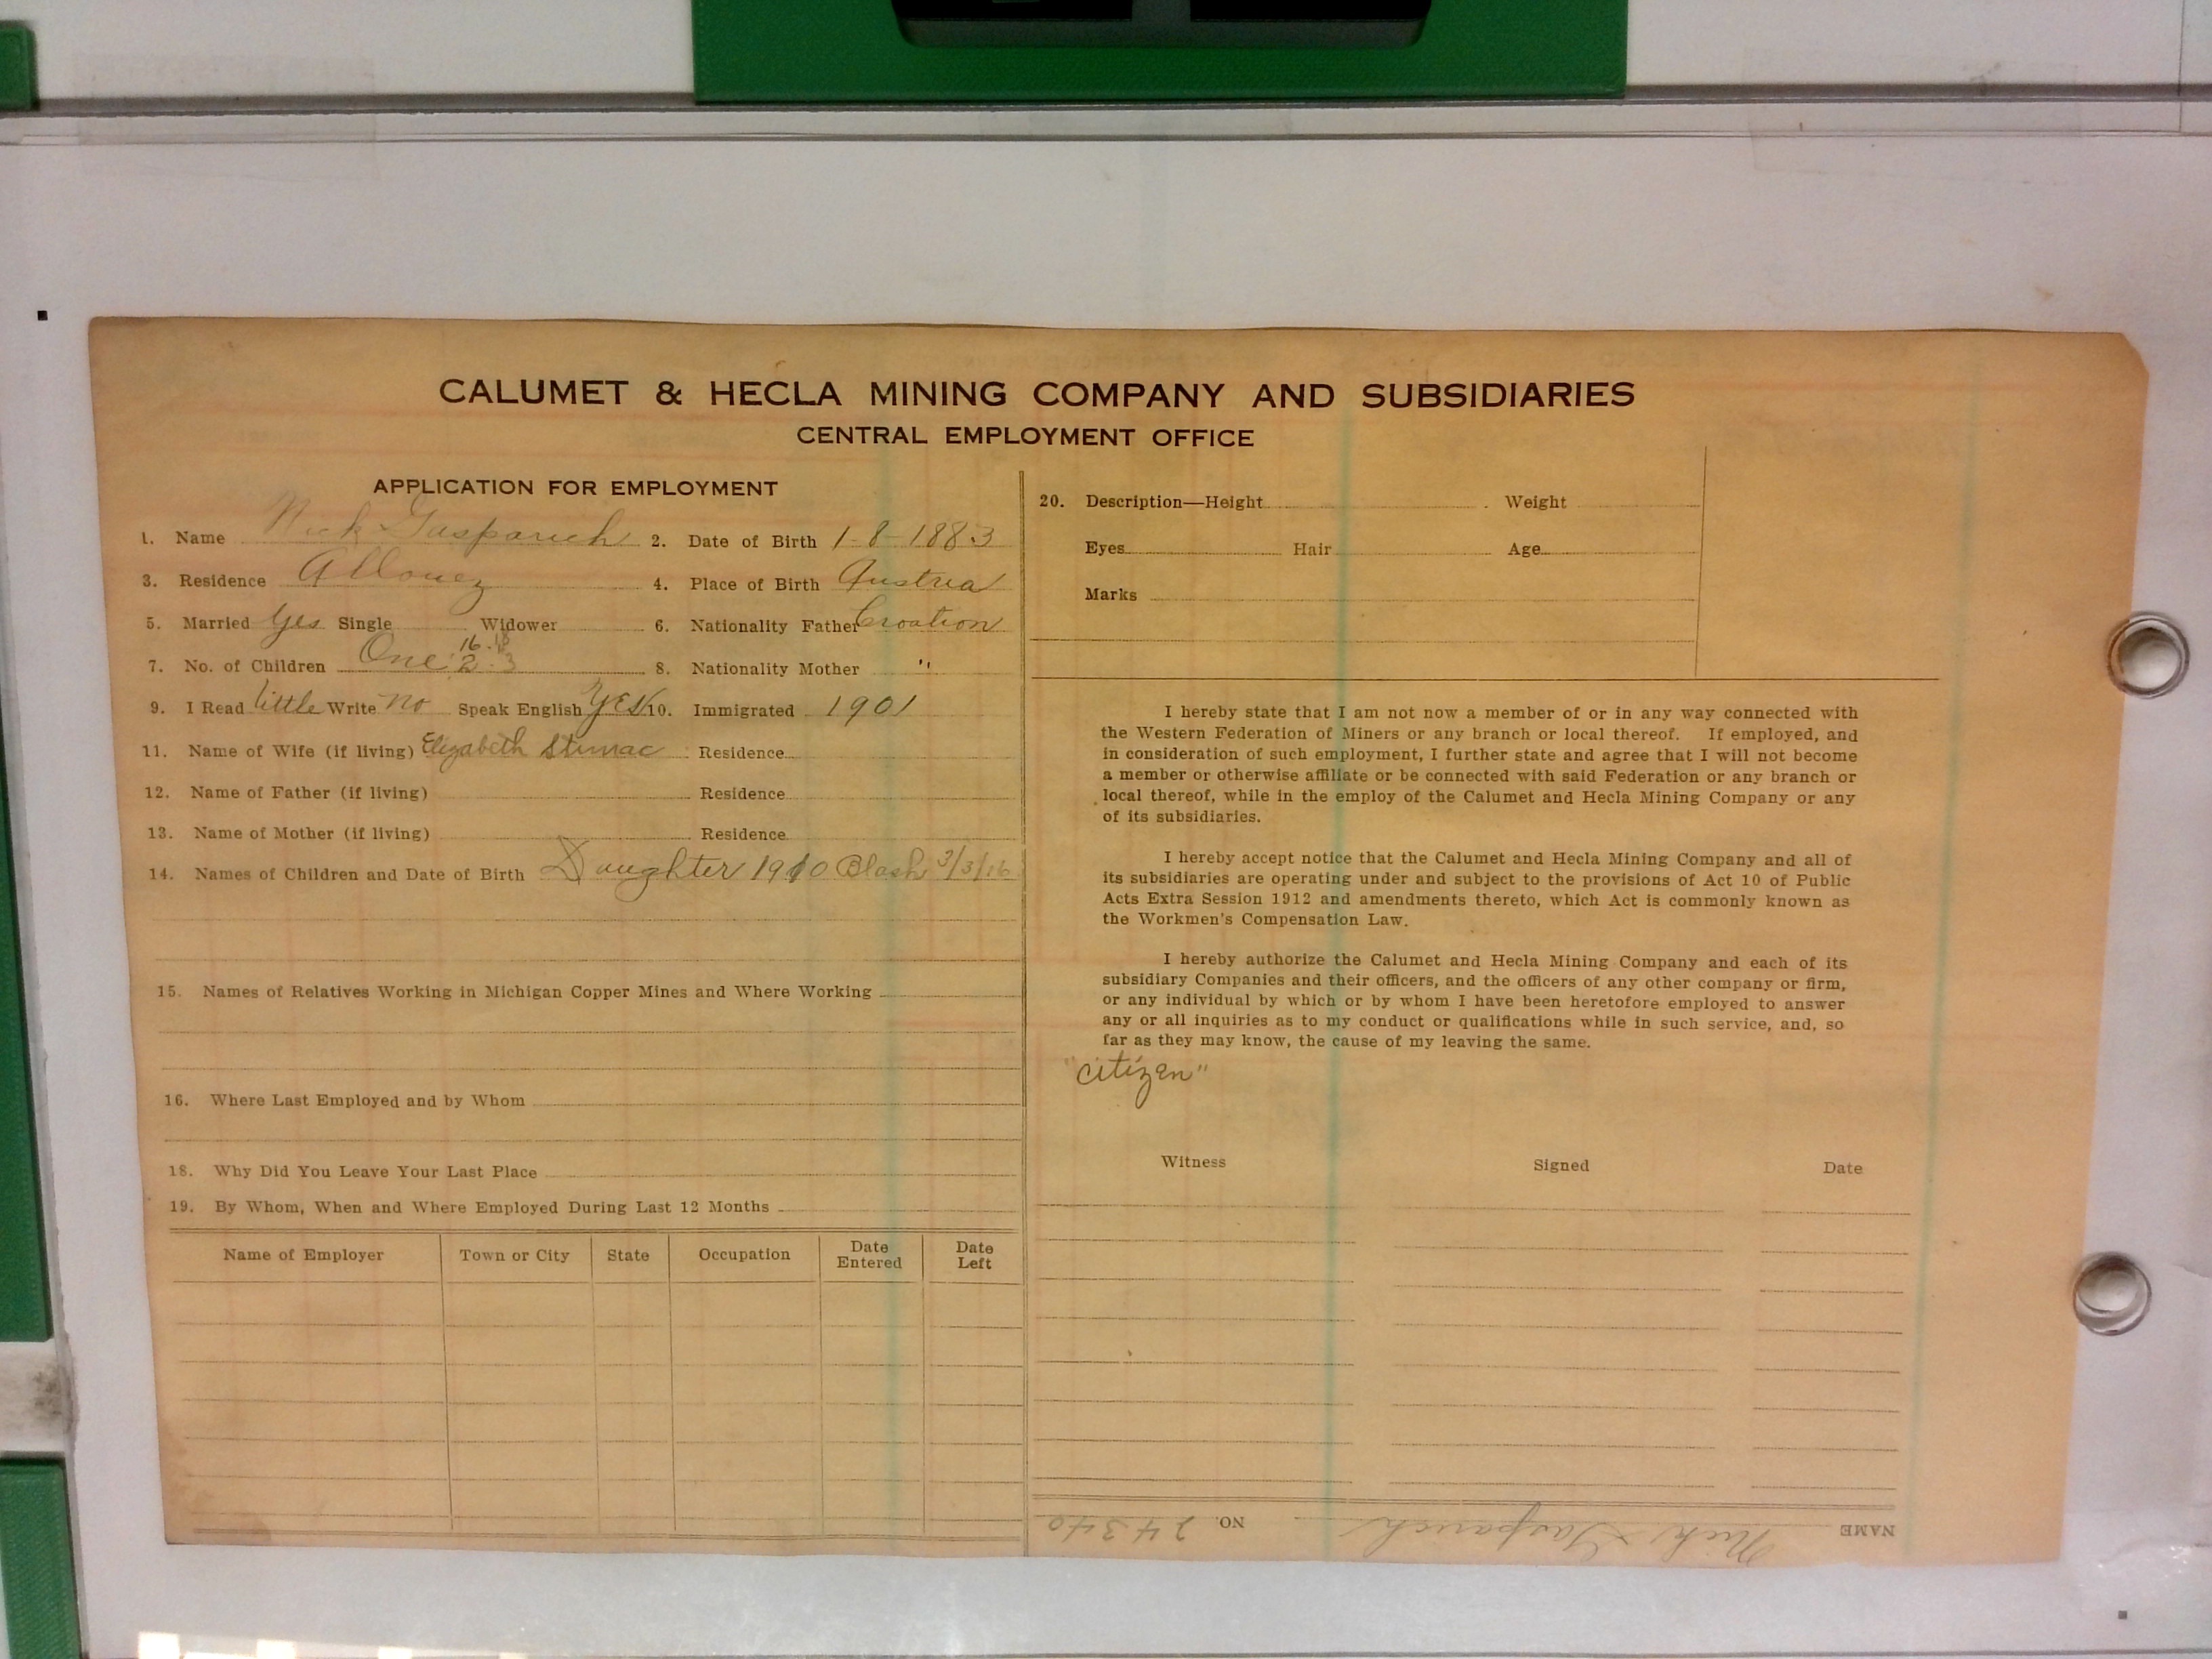 CALUMET & HECLA MINING COMPANY AND SUBSIDIARIES
CENTRAL EMPLOYMENT OFFICE
APPLICATION FOR EMPLOYMENT
1. Name Nick Gasparich 2. Date of Birth 1-8-1883
3. Residence Allouez 4. Place of Birth Austria
5. Married Yes Single Widower 6. Nationality Father Croation
16. 18
7. No. of Children One 2. 3 8. Nationality Mother "
9. I Read little Write no Speak English YES 10. Immigrated 1901
11. Name of Wife (if living) Elizabeth Stimac Residence
12. Name of Father (if living) Residence
13. Name of Mother (if living) Residence
14. Names of Children and Date of Birth Daughter 1910 3/3/16
15. Names of Relatives Working in Michigan Copper Mines and Where Working
16. Where Last Employed and by Whom
18. Why Did You Leave Your Last Place
19. By Whom, When and Where Employed During Last 12 Months
Name of Employer Town or City State Occupation Date Entered Date Left
20. Description—Height Weight
Eyes Hair Age
Marks
I hereby state that I am not now a member of or in any way connected with
the Western Federation of Miners or any branch or local thereof. If employed, and
in consideration of such employment, I further state and agree that I will not become
a member or otherwise affiliate or be connected with said Federation or any branch or
local thereof, while in the employ of the Calumet and Hecla Mining Company or any
of its subsidiaries.
I hereby accept notice that the Calumet and Hecla Mining Company and all of
its subsidiaries are operating under and subject to the provisions of Act 10 of Public
Acts Extra Session 1912 and amendments thereto, which Act is commonly known as
the Workmen's Compensation Law.
I hereby authorize the Calumet and Hecla Mining Company and each of its
subsidiary Companies and their officers, and the officers of any other company or firm,
or any individual by which or by whom I have been heretofore employed to answer
any or all inquiries as to my conduct or qualifications while in such service, and, so
far as they may know, the cause of my leaving the same.
"citizen"
Witness Signed Date
NAME Nick Gasparich NO. 24340